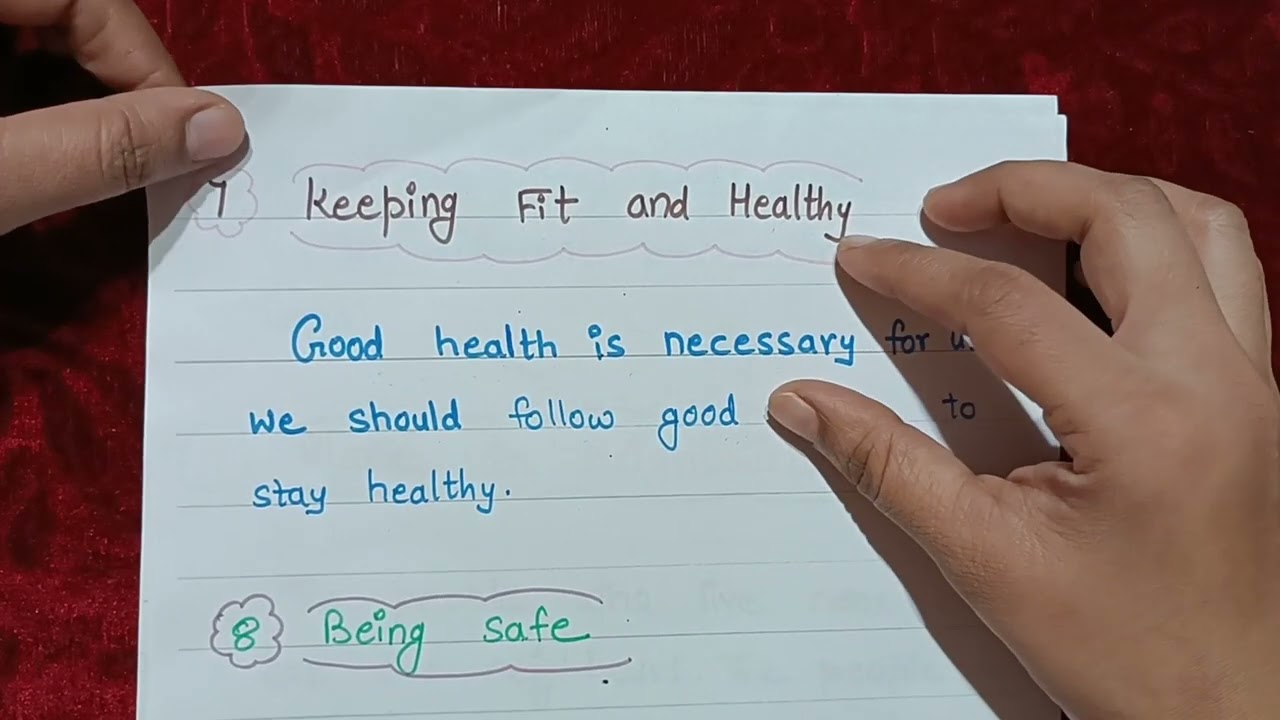 7 Keeping Fit and Healthy
Good health is necessary for
we should follow good to
stay healthy.
8 Being safe